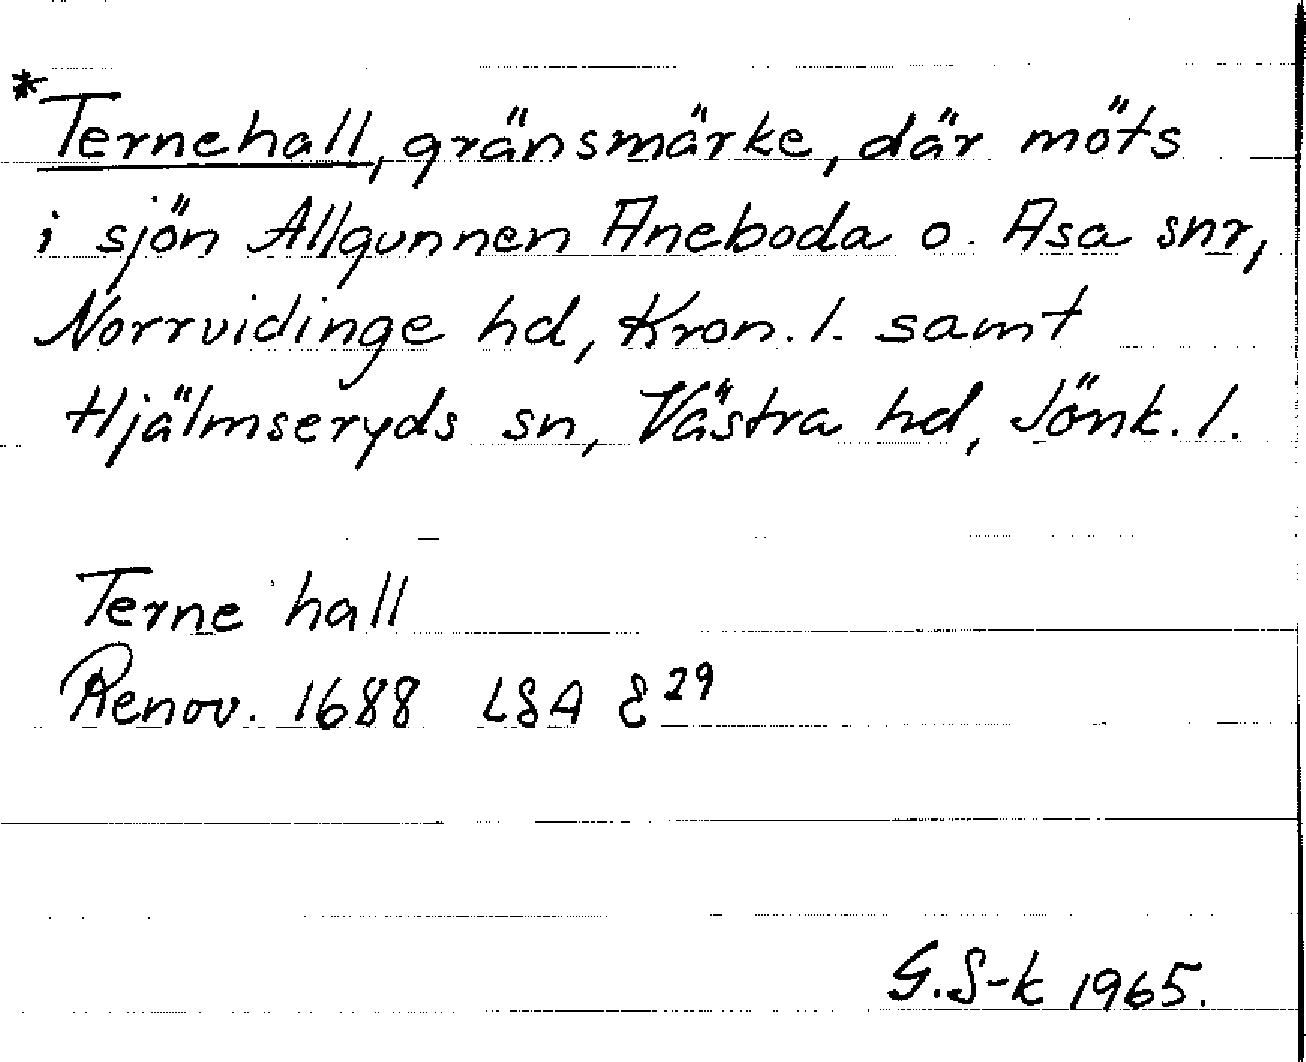 *Ternehall, gränsmärke, där möts
i sjön Allgunnen Aneboda o. Asa snr,
Norrvidinge hd, Kron. l. samt
Hjälmseryds sn, Västra hd, Jönk. l.
Terne hall
Renov. 1688 LSA E 29
G. S-k 1965.